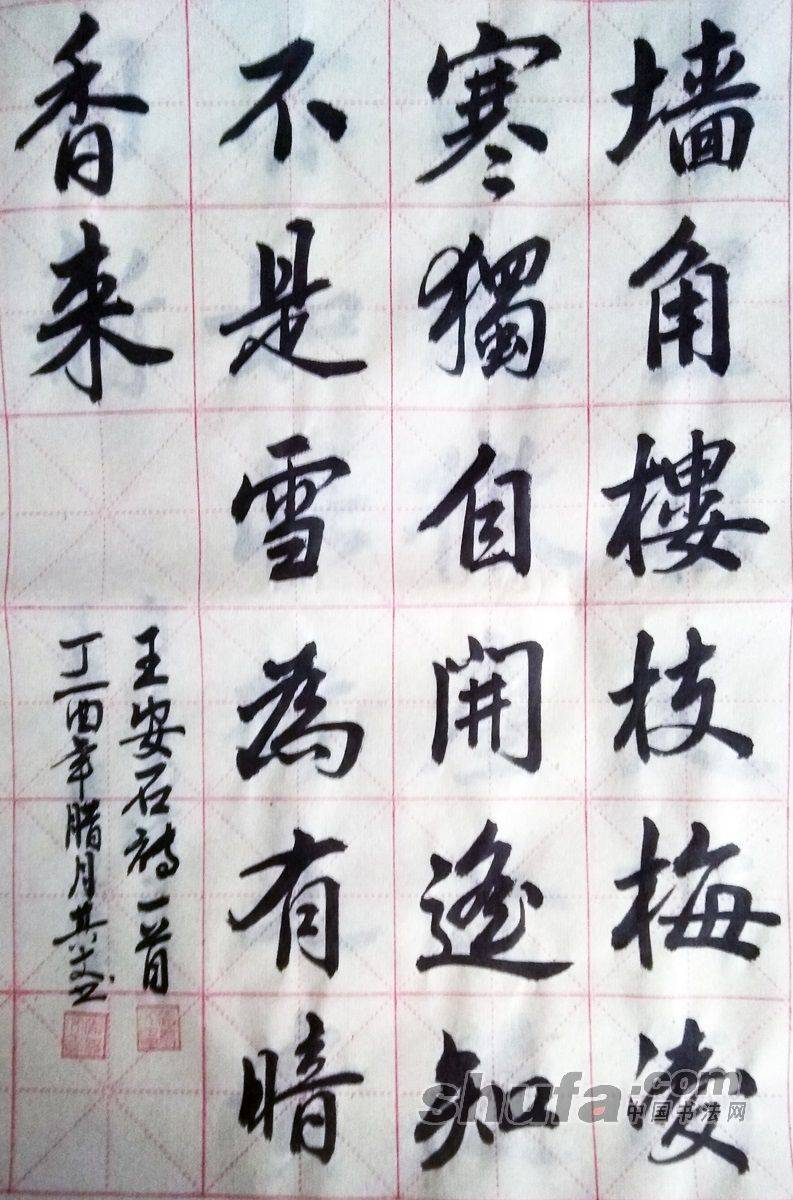 墙角樓枝梅凌
寒獨自開遙知
不是雪為有暗
香来
王安石诗一首
丁酉年腊月其文书
shufa.com
中国书法网